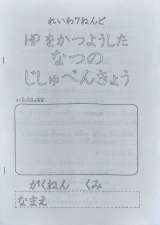 れいわ7ねんど
HPをかつようした
なつの
じしゅべんきょう
がくねん　くみ
なまえ